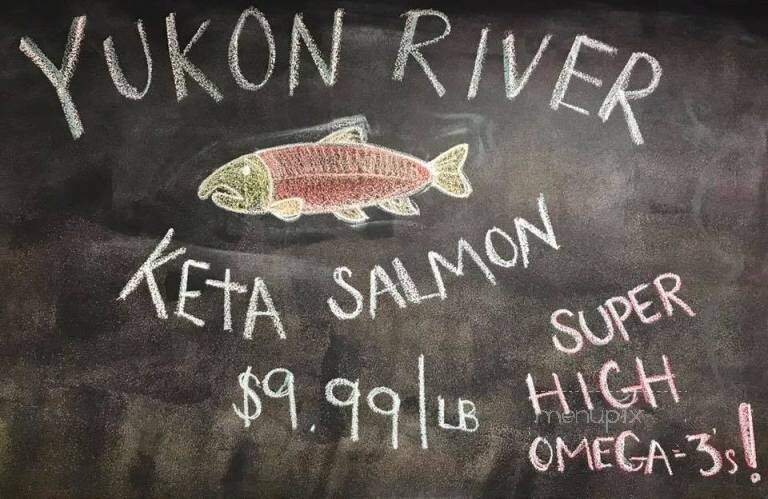 YUKON RIVER
KEtA SALMON
$9.99/LB
SUPER
HIGH
menupix
OMEGA-3's!